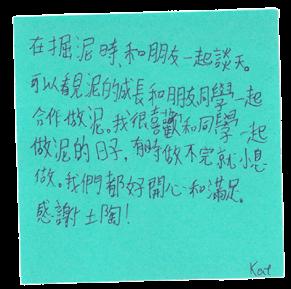 在掘泥時、和朋友一起談天。
可以看見泥的成長和朋友同學一起
合作做泥。我很喜歡和同學一起
做泥的日子，有時做不完就小息
做。我們都好開心和滿足。
感謝土陶！